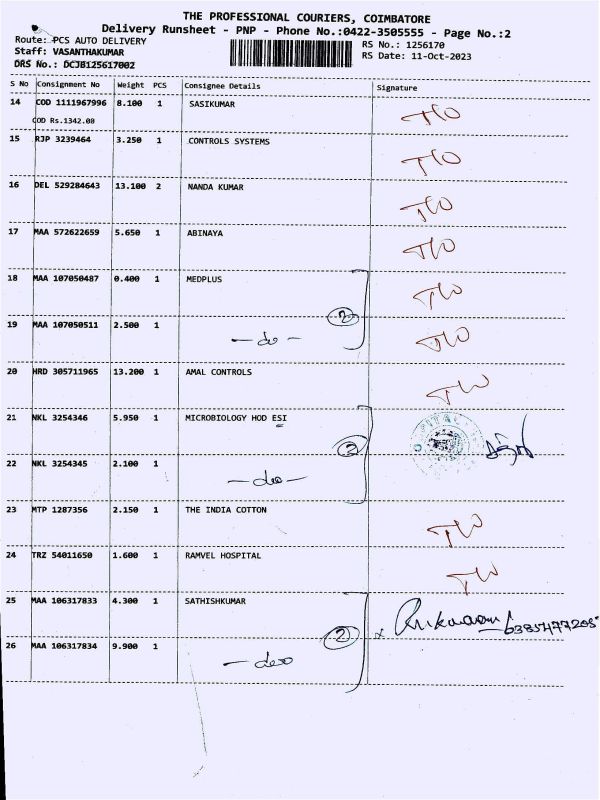 THE PROFESSIONAL COURIERS, COIMBATORE
Delivery Runsheet - PNP - Phone No.:0422-3505555 - Page No.:2
Route: PCS AUTO DELIVERY
RS No.: 1256170
Staff: VASANTHAKUMAR
RS Date: 11-Oct-2023
DRS No.: DCJB125617002
S No Consignment No Weight PCS Consignee Details Signature
14 COD 1111967996 8.100 1 SASIKUMAR
COD Rs.1342.00
15 RJP 3239464 3.250 1 CONTROLS SYSTEMS
16 DEL 529284643 13.100 2 NANDA KUMAR
17 MAA 572622659 5.650 1 ABINAYA
18 MAA 107050487 0.400 1 MEDPLUS
2
19 MAA 107050511 2.500 1 -do-
20 HRD 305711965 13.200 1 AMAL CONTROLS
21 NKL 3254346 5.950 1 MICROBIOLOGY HOD ESI
2
22 NKL 3254345 2.100 1
23 MTP 1287356 2.150 1 THE INDIA COTTON
24 TRZ 54011650 1.600 1 RAMVEL HOSPITAL
25 MAA 106317833 4.300 1 SATHISHKUMAR
2
26 MAA 106317834 9.900 1